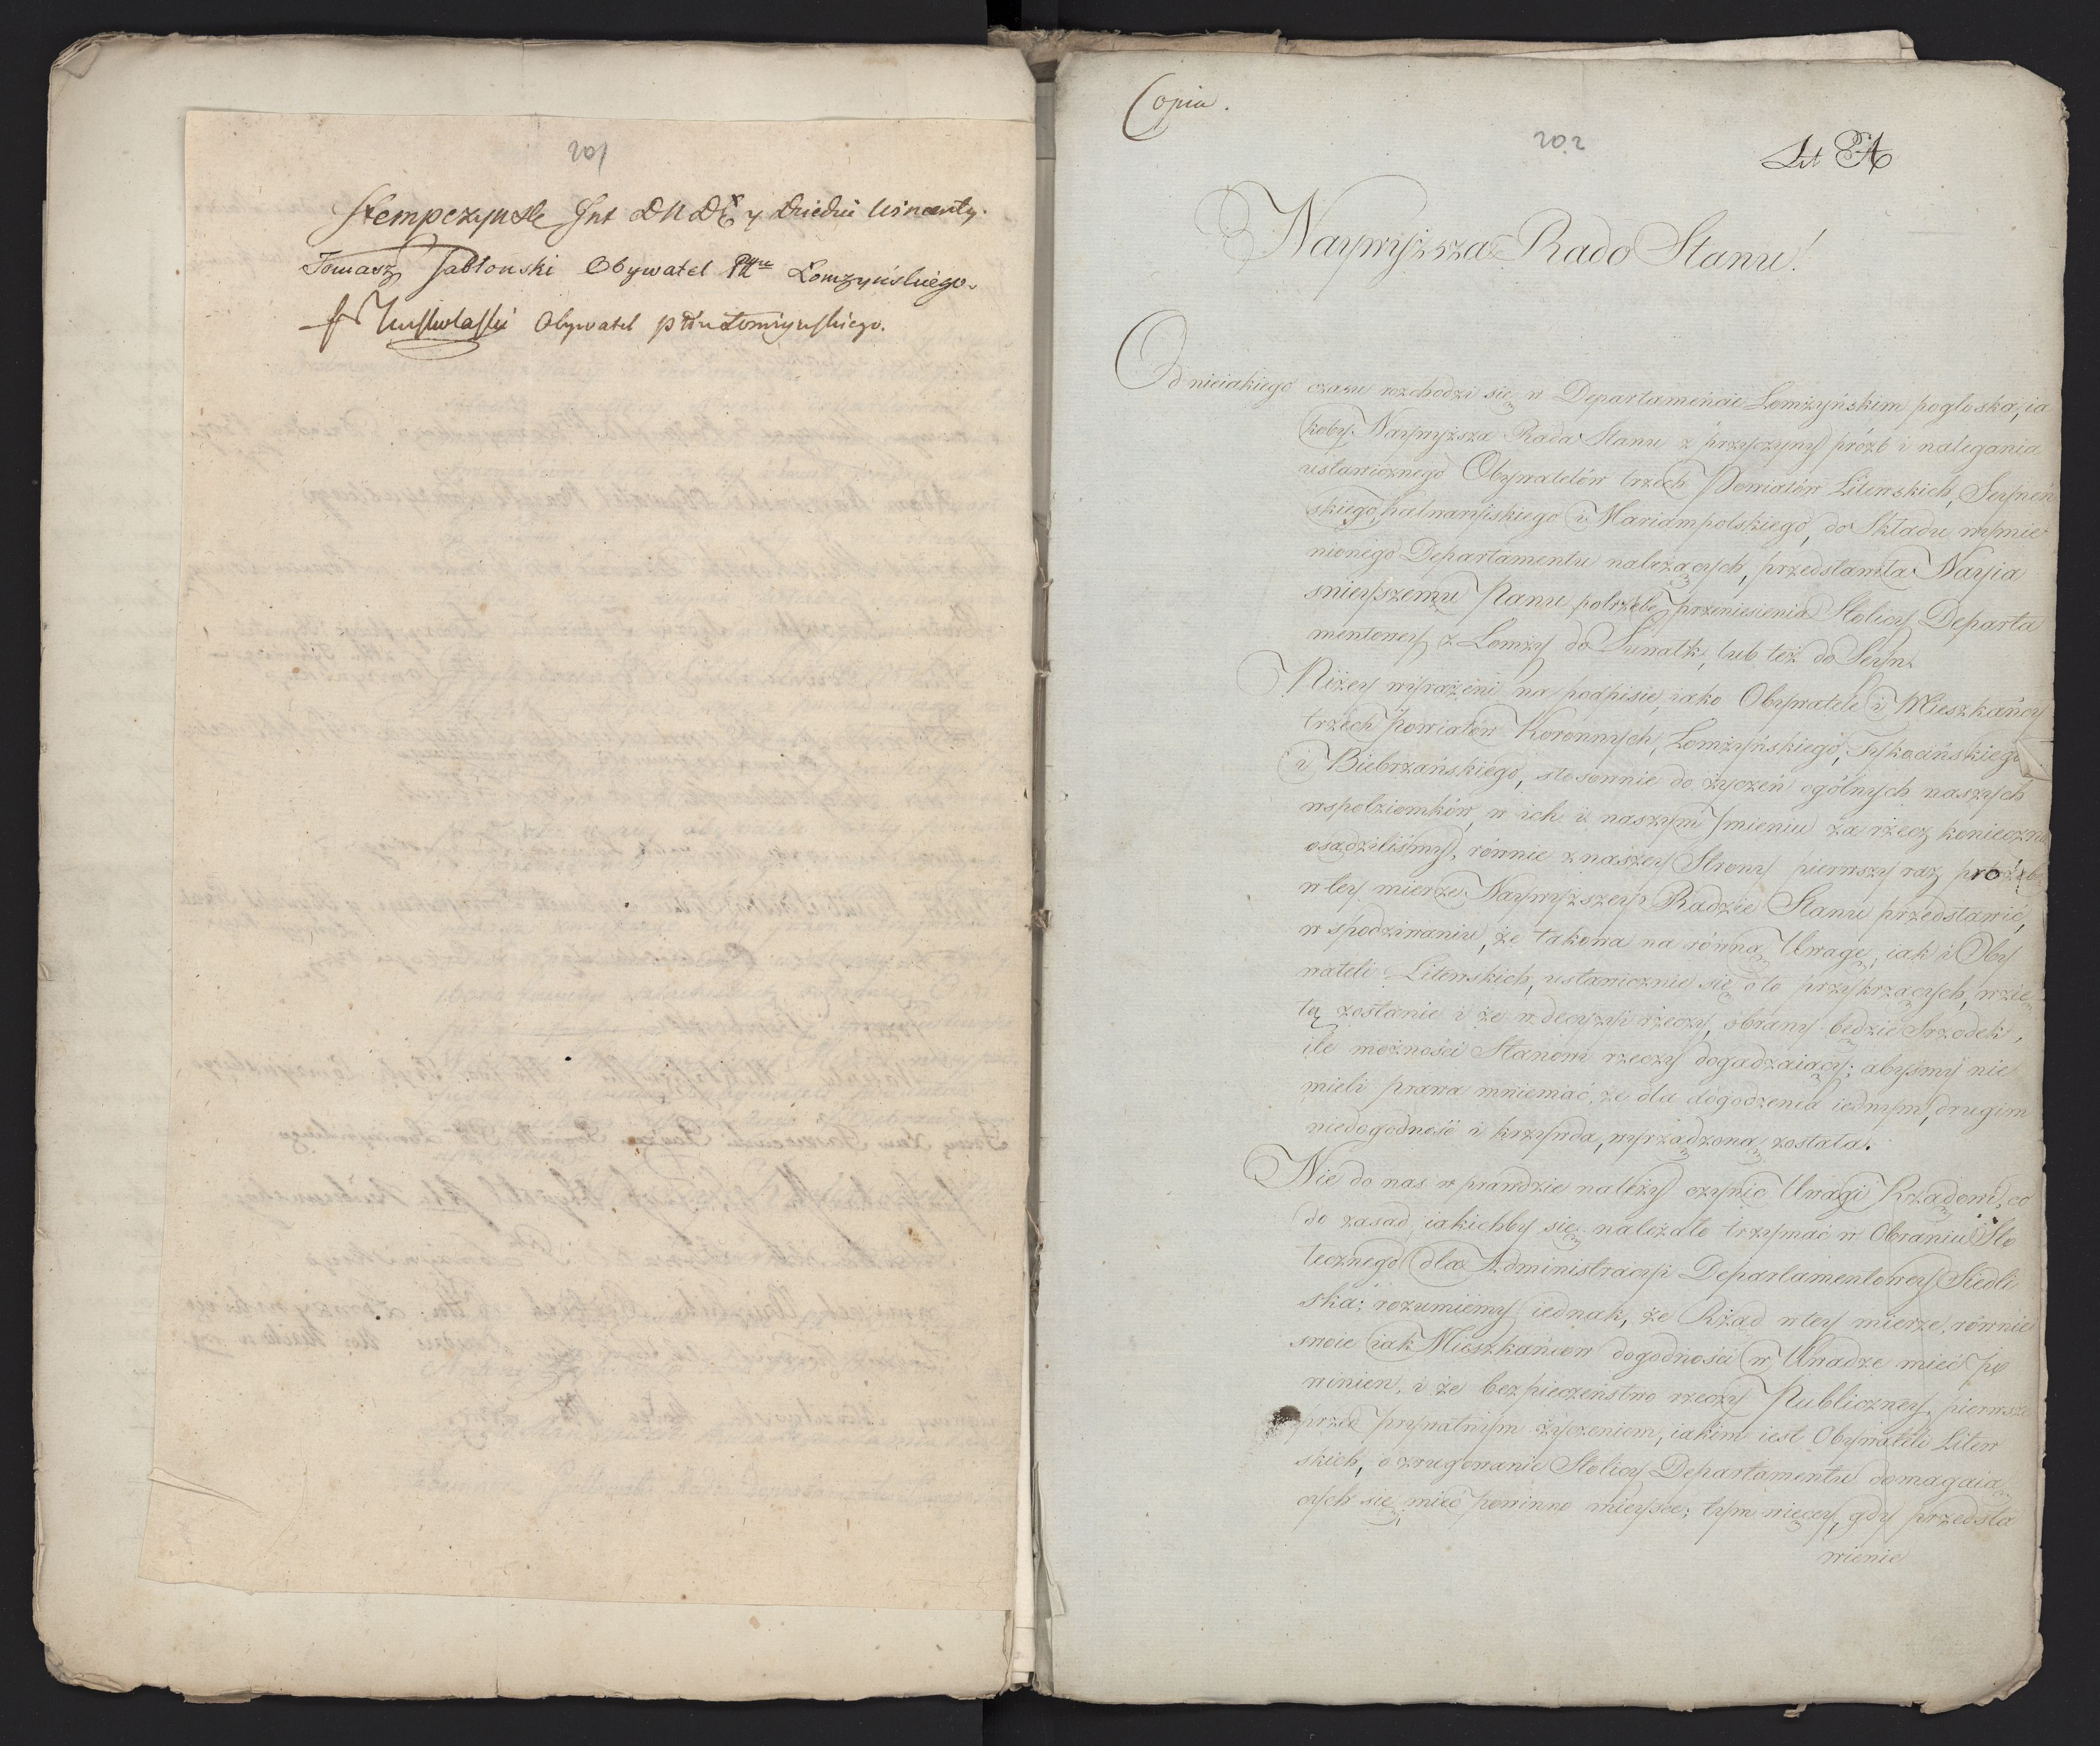 201
Tomasz Jabłonski Obywatel Pttu Łomzyńskiego.
Obywatel pttu Łomżyńskiego.
Copia.
202
Lit A
Naywyższa Rado Stanu!
Od nieiakiego czasu rozchodzi się w Departamencie Łomżyńskim pogłoska, ia
koby Naywyższa Rada Stanu z przyczyny próźb i nalegania
ustawicznego Obywatelów trzech Powiatów Litewskich, Seyneń
skiego, Kalwaryiskiego i Mariampolskiego, do Składu wymie
nionego Departamentu należących, przedstawiła Nayia
śnieyszemu Panu potrzebę przeniesienia Stolicy Departa
mentowey z Łomży do Suwałk, lub też do Seyn.
Niżey wyrażeni na podpisie, iako Obywatele i Mieszkańcy
trzech powiatów Koronnych, Łomżyńskiego, Tykocińskiego
i Biebrzańskiego, stosownie do życzeń ogólnych naszych
wspołziomków, w ich i naszym Jmieniu za rzecz konieczną
osądziliśmy, równie z naszey Strony pierwszy raz prożbę
w tey mierze Naywyższey Radzie Stanu przedstawić,
w spodziwaniu, że takowa na równą Uwagę, iak i Oby
wateli Litewskich, ustawicznie się o to przykrzących, wzię
tą zostanie i że w decyzyi rzeczy, obrany będzie Srzodek,
ile możności Stanowi rzeczy dogadzaiący; abyśmy nie
mieli prawa mniemać, że dla dogodzenia iednym, drugim
niedogodność i krzywda, wyrządzona została.
Nie do nas w prawdzie należy czynić Uwagi Rządowi, co
do zasad, iakichby się należało trzymać w Obraniu Sto
łecznego dla Administracyi Departamentowey Siedli
ska; rozumiemy iednak, że Rząd w tey mierze, równie
swoie iak Mieszkańcow dogodności w Uwadze mieć po
winien, i że bezpieczeństwo rzeczy Publiczney, pierwsze
przed prywatnym życzeniem, iakim iest Obywateli Litew
skich, o zrugowanie Stolicy Departamentu domagaią
cych się, mieć powinno mieysce; tym więcey, gdy przedsta
wienie